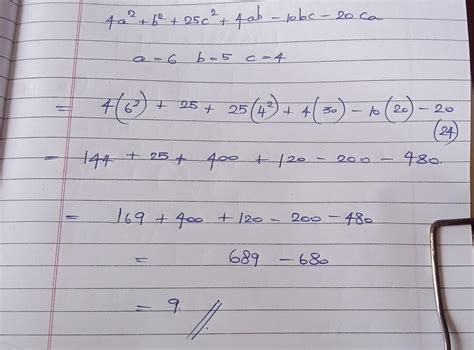 4a² + b² + 25c² + 4ab - 10bc - 20ca
a = 6 b = 5 c = 4
= 4(6²) + 25 + 25(4²) + 4(30) - 10(20) - 20(24)
= 144 + 25 + 400 + 120 - 200 - 480
= 169 + 400 + 120 - 200 - 480
= 689 - 680
= 9 //